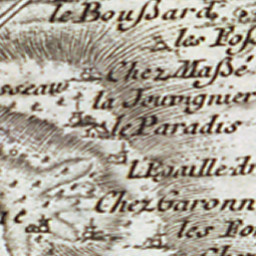 le Boußard
les Foß
Chez Maßé
sseau
la Jouvignier
le Paradis
Chez Garonn
les Fo